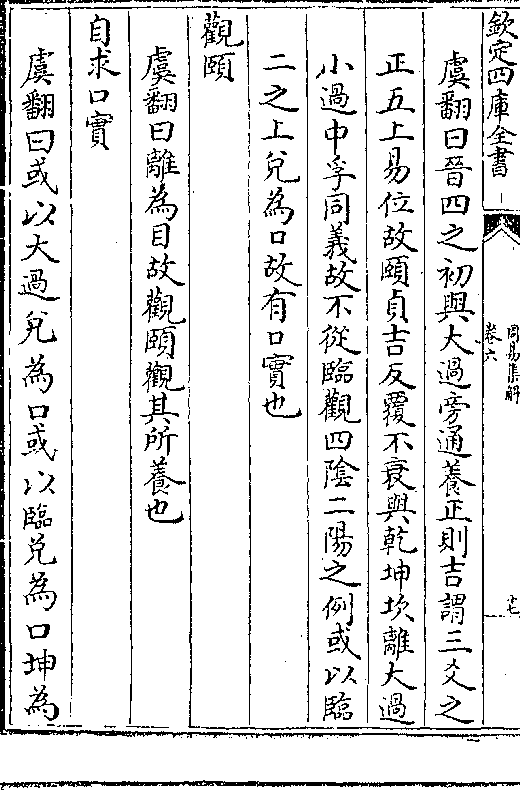 欽定四庫全書
周易集解
卷六
虞翻曰晉四之初與大過旁通養正則吉謂三爻之
正五上易位故頤貞吉反覆不衰與乾坤坎離大過
小過中孚同義故不從臨觀四陰二陽之例或以臨
二之上兌為口故有口實也
觀頤
虞翻曰離為目故觀頤觀其所養也
自求口實
虞翻曰或以大過兌為口或以臨兌為口坤為